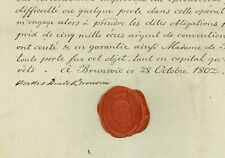 difficulté ou quelque perte dans cette opérat
m'engage alors à prendre les dites obligations p
prix de cinq mille écus argent de convention
ont couté & en garantir ainsi Madame de
toute perte sur cet objet, tant en capital qu
rêts. à Brunsvic ce 28 Octobre 1802.